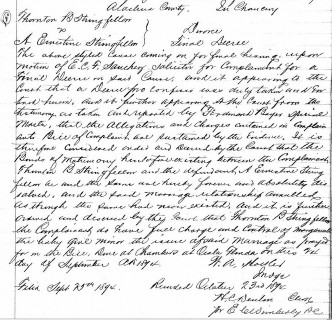 Alachua County. In Chancery
Thornton B Stringfellow
vs Divorce
A Ernestine Stringfellow Final Decree
The above styled Cause coming on for final hearing, upon
motion of E.C.F. Solicitor for Complainant for a
Final Decree in said Cause, and it appearing to the
Court that a Decree pro confesso was duly taken and
and it further appearing to the Court from the
testimony as taken and reported by Special
Master, that the Allegations and Charges contained in Complain
ants Bill of Complaint are sustained by the Proofs, It is
therefore considered ordered and decreed by the Court that the
Bonds of Matrimony heretofore existing between the Complainant
Thornton B Stringfellow and the defendant, A Ernestine String
fellow be and the same are hereby forever and absolutely dis
solved, and the said Marriage relationship annulled
as though the same had never existed. And it is further
ordered and decreed by the Court that Thornton B Stringfellow
the Complainant, do have full charge and Control of
the minor the issue of said Marriage as prayed
for in the Bill. Done at Chambers at Ocala Florida on this
day of September AD 1894.
W. A. Hocker
Judge
Filed Sept 25th 1894. Recorded October 23rd 1894
Clerk
DC